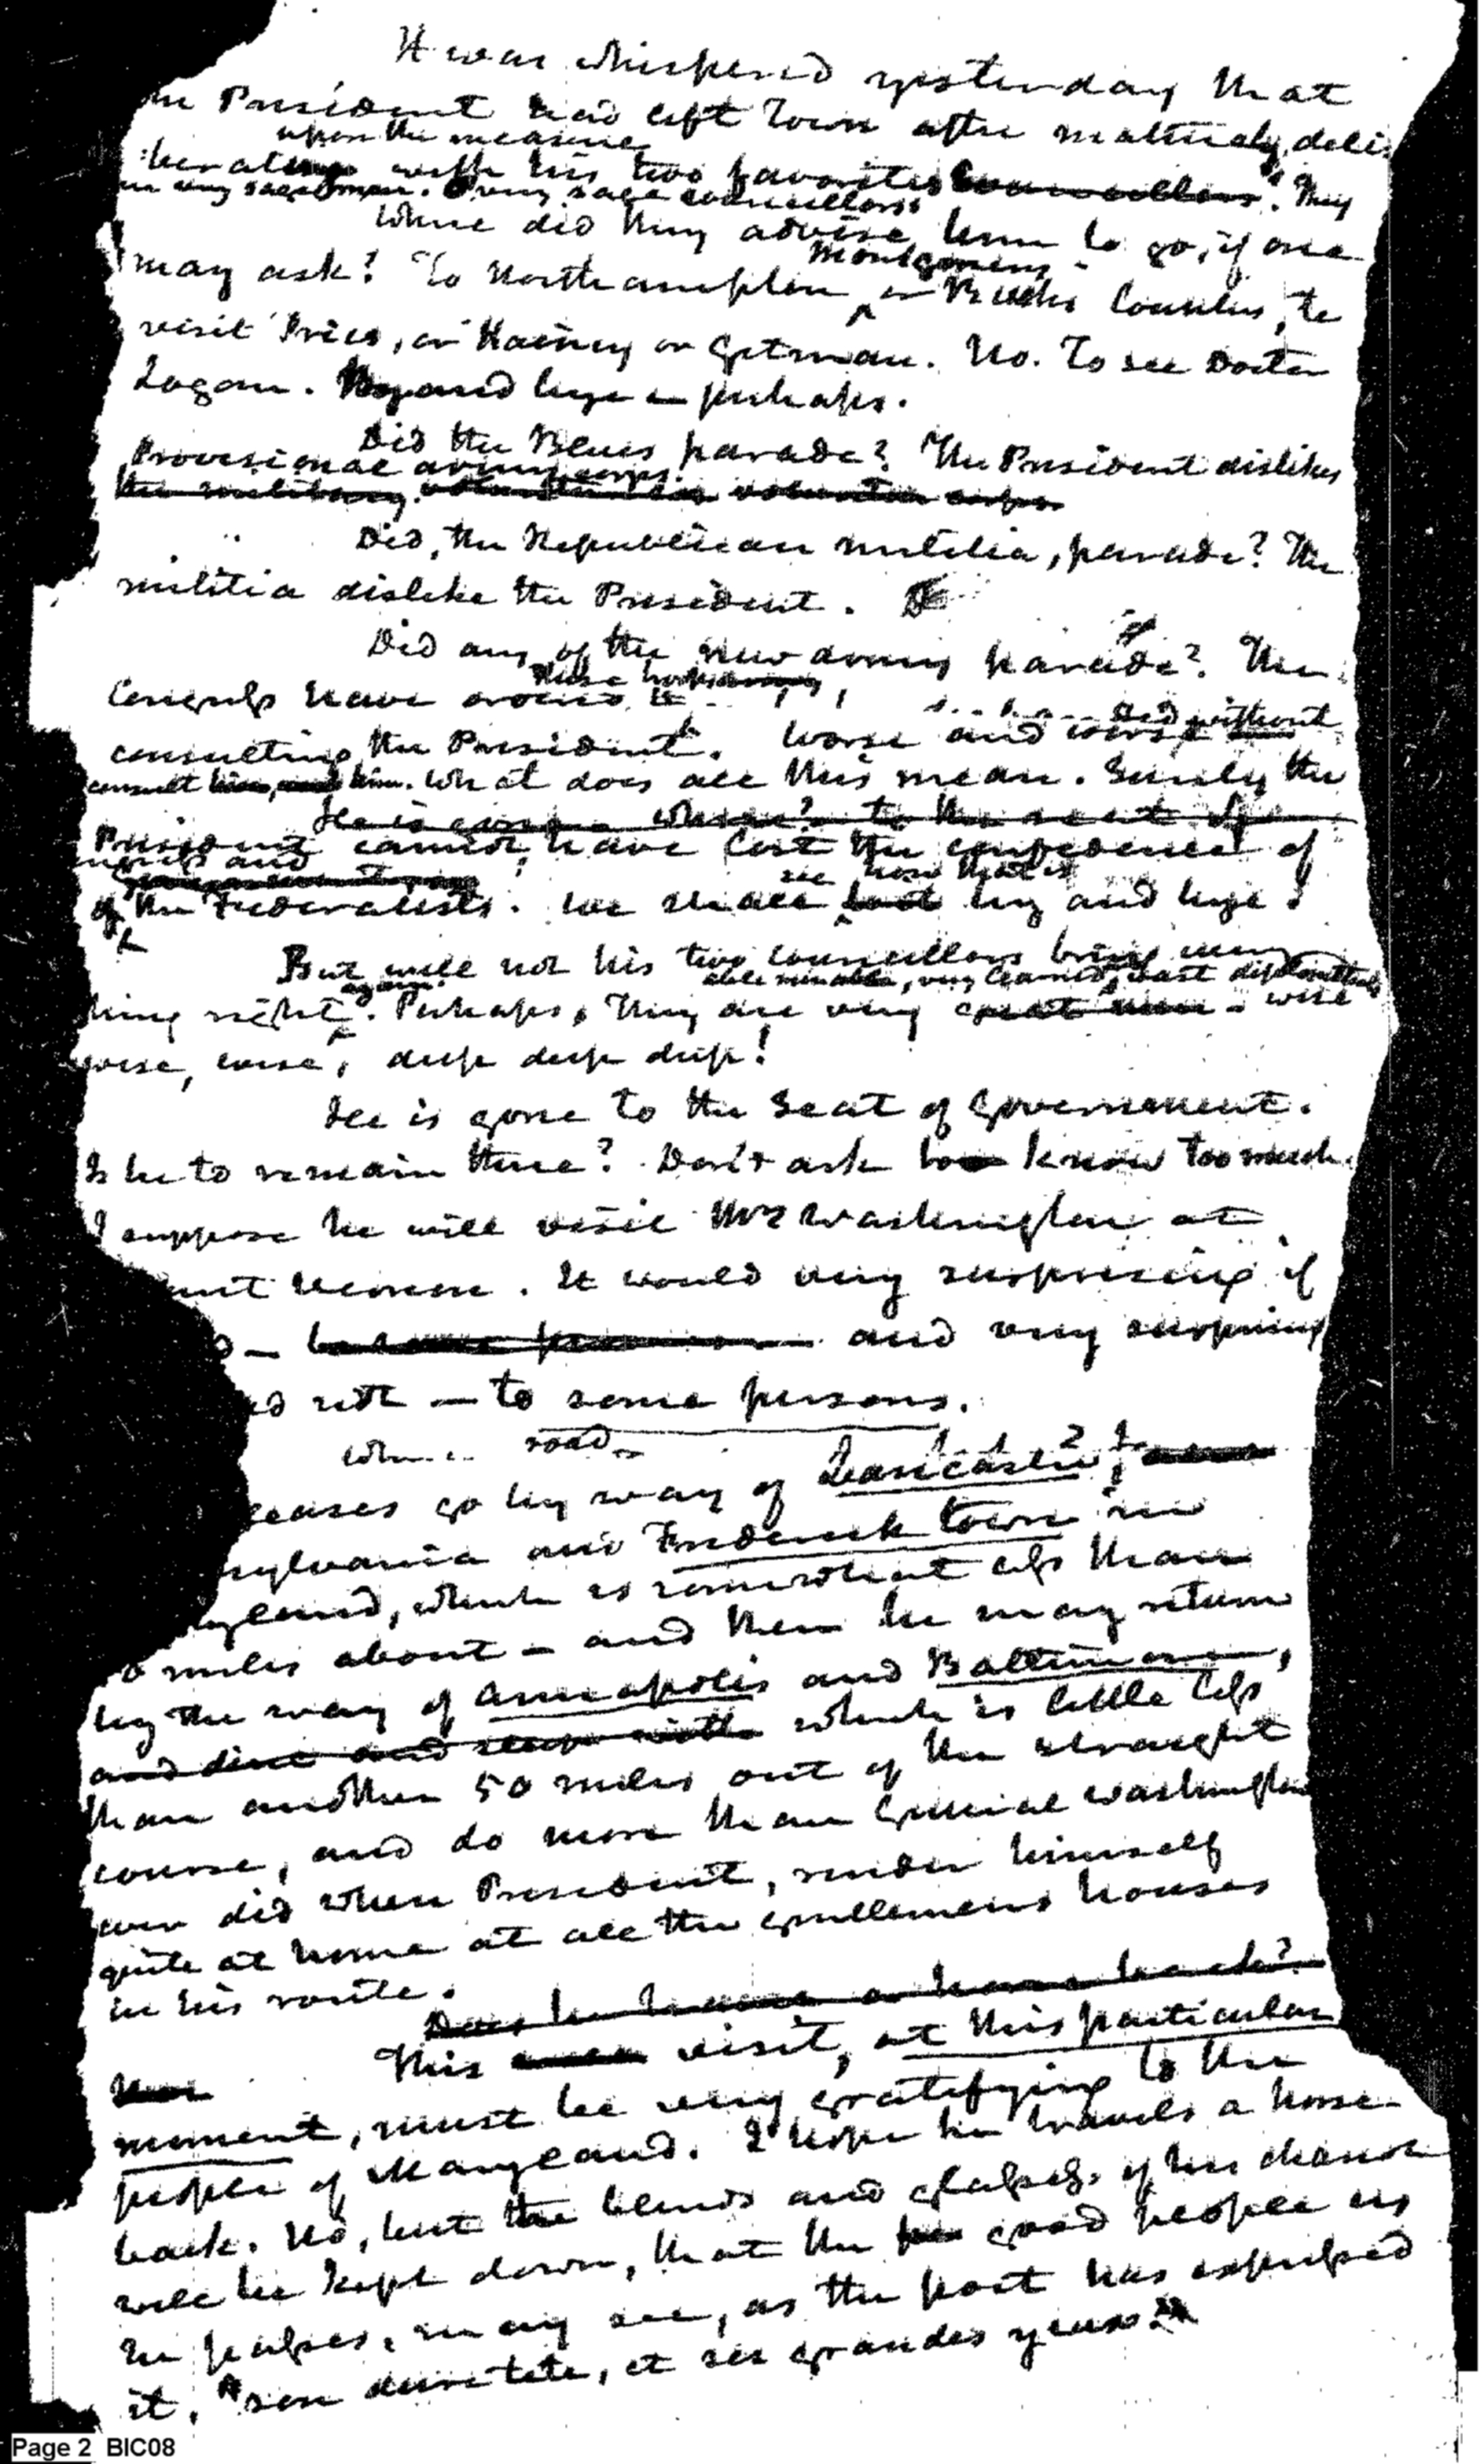 It was whispered yesterday that
President had left Town after maturely deli
upon the measure
berating with his two favorites They
very sage councellors
Where did they advise him to go, if one
Montgomery
may ask? To Northampton or Bucks Counties, to
visit Fries, or Haeney or Getman. No. To see Doctor
Logan. By and bye perhaps.
Did the Blues parade? The President dislikes
Provisional army corps.
the military volunteer corps
Did, the Republican militia, parade? The
militia dislike the President.
Did any of the new army parade? The
these troops
Congress have ordered
without
consulting the President. Worse and worse
consult him. What does all this mean. Surely the
He is gone where? to the seat of
President cannot have lost the confidence of
and
see how that is
of the Federalists. We shall by and bye
But will not his two councellors bring every
again
able minds, very learned, vast
thing right. Perhaps, They are very great men wise
wise, wise, deep deep deep!
He is gone to the Seat of Government.
Is he to remain there? Don't ask to know too much.
I suppose he will visit Mrs Washington at
Vernon. It would very surprising if
— and very surprising
not — to some persons.
road
go by way of Lancaster?
sylvania and Frederick town in
yland, which is somewhat less than
miles about — and then he may return
by the way of Annapolis and Baltimore,
and dine and sleep with which is little less
than another 50 miles out of the straight
course, and do more than General Washington
ever did when President, render himself
quite at home at all the gentlemens houses
in his route.
Does he travel a horse back?
This visit, at this particular
moment, must be very gratifying to the
people of Maryland. I hope he travels a horse
back. No, but the blinds and glasses of his chariot
will be kept down, that the good people as
he passes, may see, as the poet has expressed
it, "son dure tete, et ses grandes yeux."
Page 2 BIC08